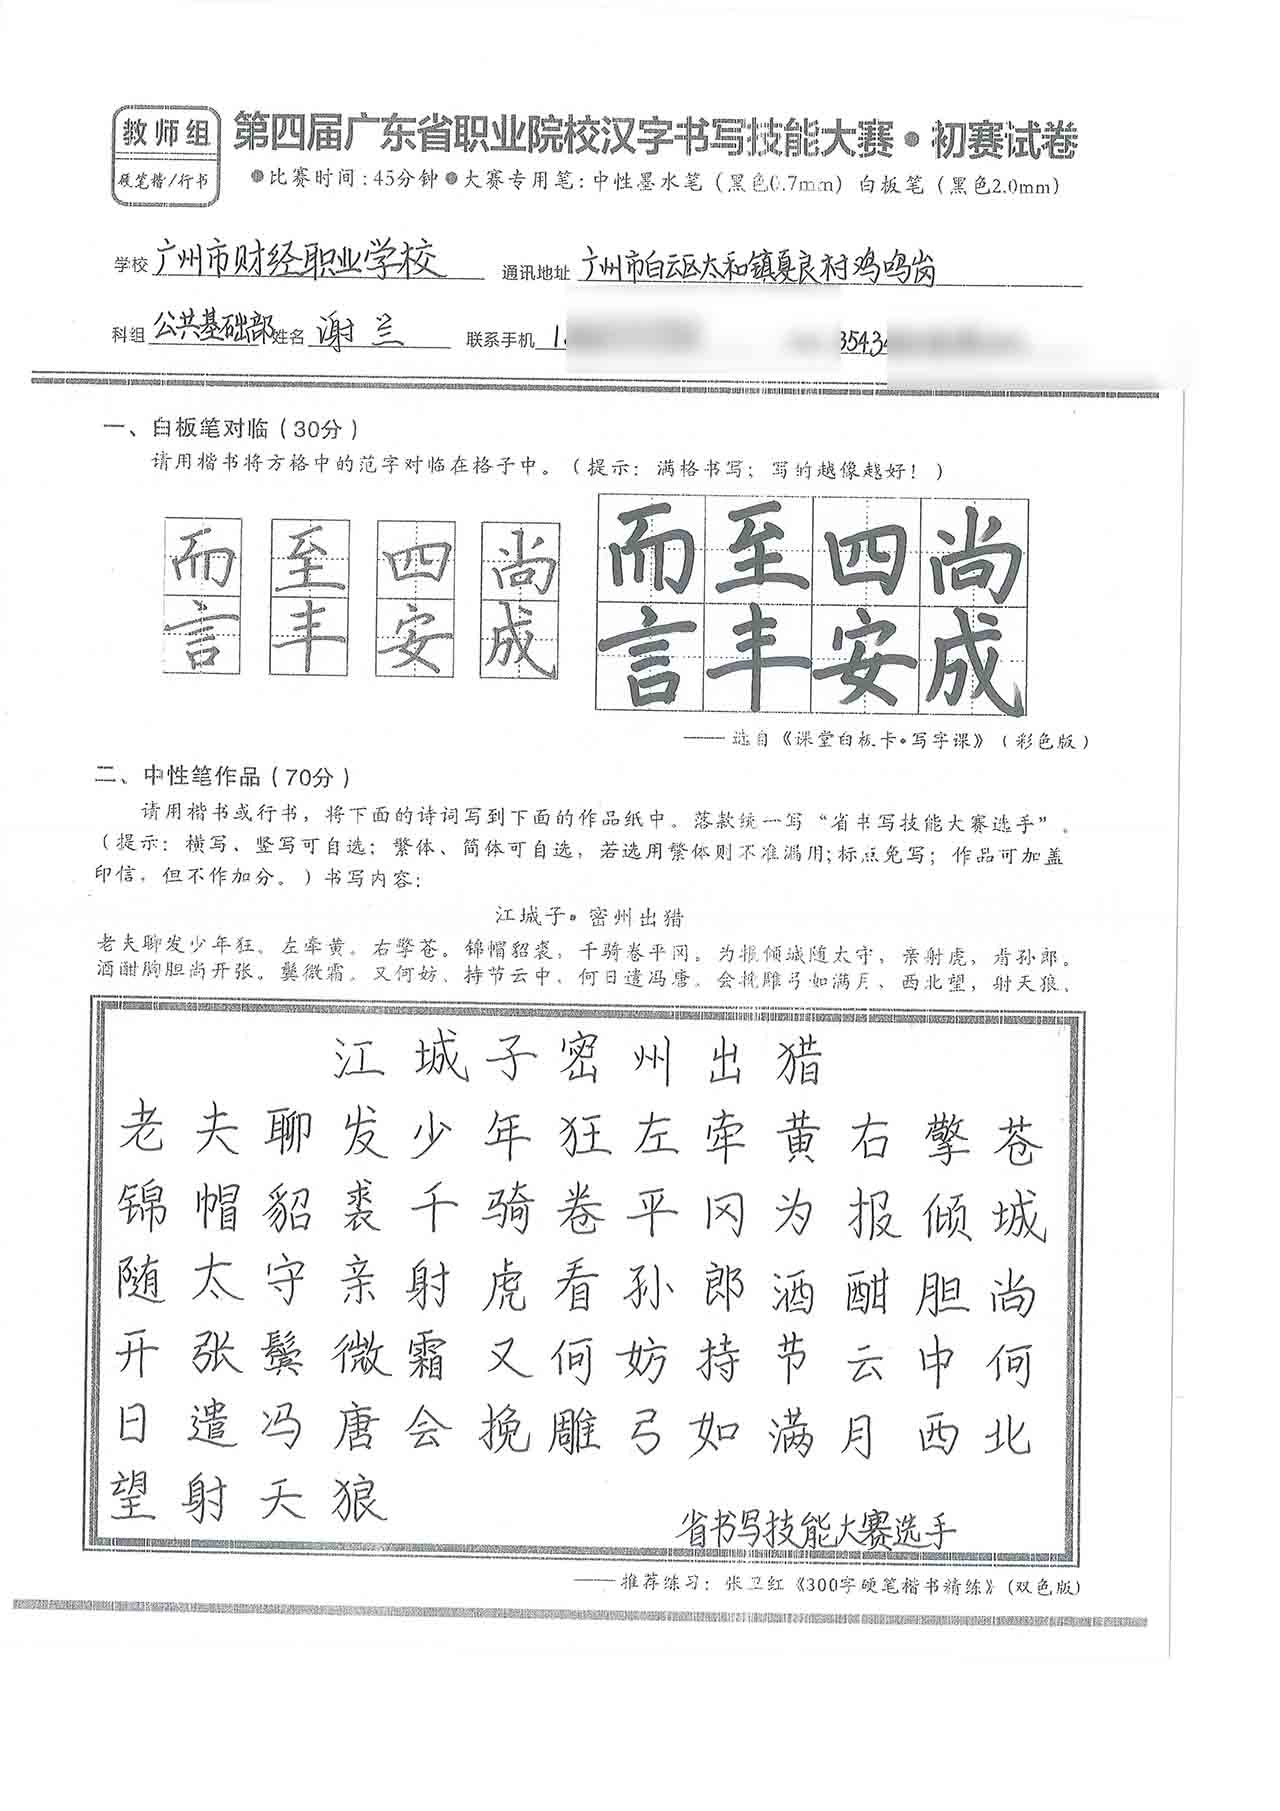 教师组
硬笔楷/行书
第四届广东省职业院校汉字书写技能大赛•初赛试卷
●比赛时间:45分钟●大赛专用笔:中性墨水笔(黑色0.7mm)白板笔(黑色2.0mm)
学校 广州市财经职业学校 通讯地址 广州市白云区太和镇夏良村鸡鸣岗
科组 公共基础部 姓名 谢兰 联系手机 1 35434
一、白板笔对临(30分)
请用楷书将方格中的范字对临在格子中。(提示:满格书写;写的越像越好!)
而 至 四 尚 而至四尚
言 丰 安 成 言丰安成
——选自《课堂白板卡•写字课》(彩色版)
二、中性笔作品(70分)
请用楷书或行书,将下面的诗词写到下面的作品纸中。落款统一写“省书写技能大赛选手”。
(提示:横写、竖写可自选;繁体、简体可自选,若选用繁体则不准漏用;标点免写;作品可加盖
印信,但不作加分。)书写内容:
江城子•密州出猎
老夫聊发少年狂。左牵黄。右擎苍。锦帽貂裘,千骑卷平冈。为报倾城随太守,亲射虎,看孙郎。
酒酣胸胆尚开张。鬓微霜。又何妨、持节云中,何日遣冯唐。会挽雕弓如满月、西北望,射天狼。
江城子密州出猎
老夫聊发少年狂左牵黄右擎苍
锦帽貂裘千骑卷平冈为报倾城
随太守亲射虎看孙郎酒酣胆尚
开张鬓微霜又何妨持节云中何
日遣冯唐会挽雕弓如满月西北
望射天狼
省书写技能大赛选手
——推荐练习:张卫红《300字硬笔楷书精练》(双色版)